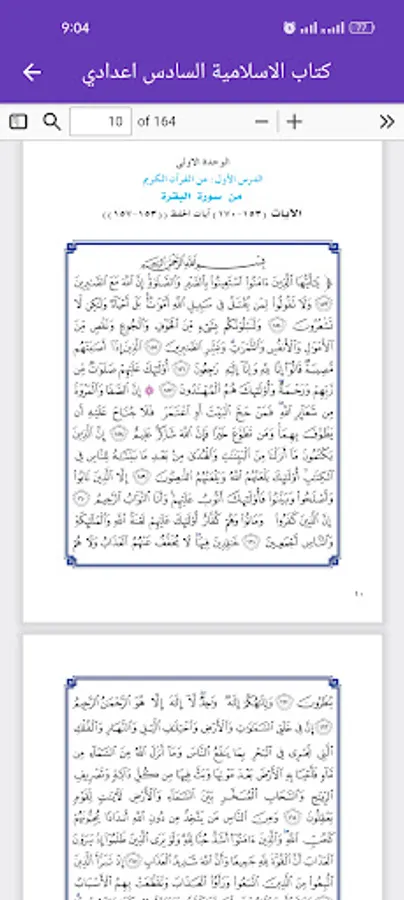 9:04
77
كتاب الاسلامية السادس اعدادي
10 of 164
الوحدة الاولى
الدرس الأول: من القرآن الكريم
من سورة البقرة
الآيات (١٥٣-١٧٠) آيات الحفظ ((١٥٣-١٥٧))
بِسْمِ اللَّهِ الرَّحْمَنِ الرَّحِيمِ
﴿ يَٰٓأَيُّهَا ٱلَّذِينَ ءَامَنُوا۟ ٱسْتَعِينُوا۟ بِٱلصَّبْرِ وَٱلصَّلَوٰةِ إِنَّ ٱللَّهَ مَعَ ٱلصَّٰبِرِينَ
١٥٣ وَلَا تَقُولُوا۟ لِمَن يُقْتَلُ فِى سَبِيلِ ٱللَّهِ أَمْوَٰتٌۢ بَلْ أَحْيَآءٌ وَلَٰكِن لَّا
تَشْعُرُونَ ١٥٤ وَلَنَبْلُوَنَّكُم بِشَىْءٍ مِّنَ ٱلْخَوْفِ وَٱلْجُوعِ وَنَقْصٍ مِّنَ
ٱلْأَمْوَٰلِ وَٱلْأَنفُسِ وَٱلثَّمَرَٰتِ وَبَشِّرِ ٱلصَّٰبِرِينَ ١٥٥ ٱلَّذِينَ إِذَآ أَصَٰبَتْهُم
مُّصِيبَةٌ قَالُوٓا۟ إِنَّا لِلَّهِ وَإِنَّآ إِلَيْهِ رَٰجِعُونَ ١٥٦ أُو۟لَٰٓئِكَ عَلَيْهِمْ صَلَوَٰتٌ مِّن
رَّبِّهِمْ وَرَحْمَةٌ وَأُو۟لَٰٓئِكَ هُمُ ٱلْمُهْتَدُونَ ١٥٧ ۞ إِنَّ ٱلصَّفَا وَٱلْمَرْوَةَ
مِن شَعَآئِرِ ٱللَّهِ فَمَنْ حَجَّ ٱلْبَيْتَ أَوِ ٱعْتَمَرَ فَلَا جُنَاحَ عَلَيْهِ أَن
يَطَّوَّفَ بِهِمَا وَمَن تَطَوَّعَ خَيْرًا فَإِنَّ ٱللَّهَ شَاكِرٌ عَلِيمٌ ١٥٨ إِنَّ ٱلَّذِينَ
يَكْتُمُونَ مَآ أَنزَلْنَا مِنَ ٱلْبَيِّنَٰتِ وَٱلْهُدَىٰ مِنۢ بَعْدِ مَا بَيَّنَّٰهُ لِلنَّاسِ فِى
ٱلْكِتَٰبِ أُو۟لَٰٓئِكَ يَلْعَنُهُمُ ٱللَّهُ وَيَلْعَنُهُمُ ٱللَّٰعِنُونَ ١٥٩ إِلَّا ٱلَّذِينَ تَابُوا۟
وَأَصْلَحُوا۟ وَبَيَّنُوا۟ فَأُو۟لَٰٓئِكَ أَتُوبُ عَلَيْهِمْ وَأَنَا ٱلتَّوَّابُ ٱلرَّحِيمُ ١٦٠
إِنَّ ٱلَّذِينَ كَفَرُوا۟ وَمَاتُوا۟ وَهُمْ كُفَّارٌ أُو۟لَٰٓئِكَ عَلَيْهِمْ لَعْنَةُ ٱللَّهِ وَٱلْمَلَٰٓئِكَةِ
وَٱلنَّاسِ أَجْمَعِينَ ١٦١ خَٰلِدِينَ فِيهَا لَا يُخَفَّفُ عَنْهُمُ ٱلْعَذَابُ وَلَا هُمْ
١٠
يُنظَرُونَ ١٦٢ وَإِلَٰهُكُمْ إِلَٰهٌ وَٰحِدٌ لَّآ إِلَٰهَ إِلَّا هُوَ ٱلرَّحْمَٰنُ ٱلرَّحِيمُ
١٦٣ إِنَّ فِى خَلْقِ ٱلسَّمَٰوَٰتِ وَٱلْأَرْضِ وَٱخْتِلَٰفِ ٱلَّيْلِ وَٱلنَّهَارِ وَٱلْفُلْكِ
ٱلَّتِى تَجْرِى فِى ٱلْبَحْرِ بِمَا يَنفَعُ ٱلنَّاسَ وَمَآ أَنزَلَ ٱللَّهُ مِنَ ٱلسَّمَآءِ مِن
مَّآءٍ فَأَحْيَا بِهِ ٱلْأَرْضَ بَعْدَ مَوْتِهَا وَبَثَّ فِيهَا مِن كُلِّ دَآبَّةٍ وَتَصْرِيفِ
ٱلرِّيَٰحِ وَٱلسَّحَابِ ٱلْمُسَخَّرِ بَيْنَ ٱلسَّمَآءِ وَٱلْأَرْضِ لَءَايَٰتٍ لِّقَوْمٍ
يَعْقِلُونَ ١٦٤ وَمِنَ ٱلنَّاسِ مَن يَتَّخِذُ مِن دُونِ ٱللَّهِ أَندَادًا يُحِبُّونَهُمْ
كَحُبِّ ٱللَّهِ وَٱلَّذِينَ ءَامَنُوٓا۟ أَشَدُّ حُبًّا لِّلَّهِ وَلَوْ يَرَى ٱلَّذِينَ ظَلَمُوٓا۟ إِذْ يَرَوْنَ
ٱلْعَذَابَ أَنَّ ٱلْقُوَّةَ لِلَّهِ جَمِيعًا وَأَنَّ ٱللَّهَ شَدِيدُ ٱلْعَذَابِ ١٦٥ إِذْ تَبَرَّأَ ٱلَّذِينَ
ٱتُّبِعُوا۟ مِنَ ٱلَّذِينَ ٱتَّبَعُوا۟ وَرَأَوُا۟ ٱلْعَذَابَ وَتَقَطَّعَتْ بِهِمُ ٱلْأَسْبَابُ